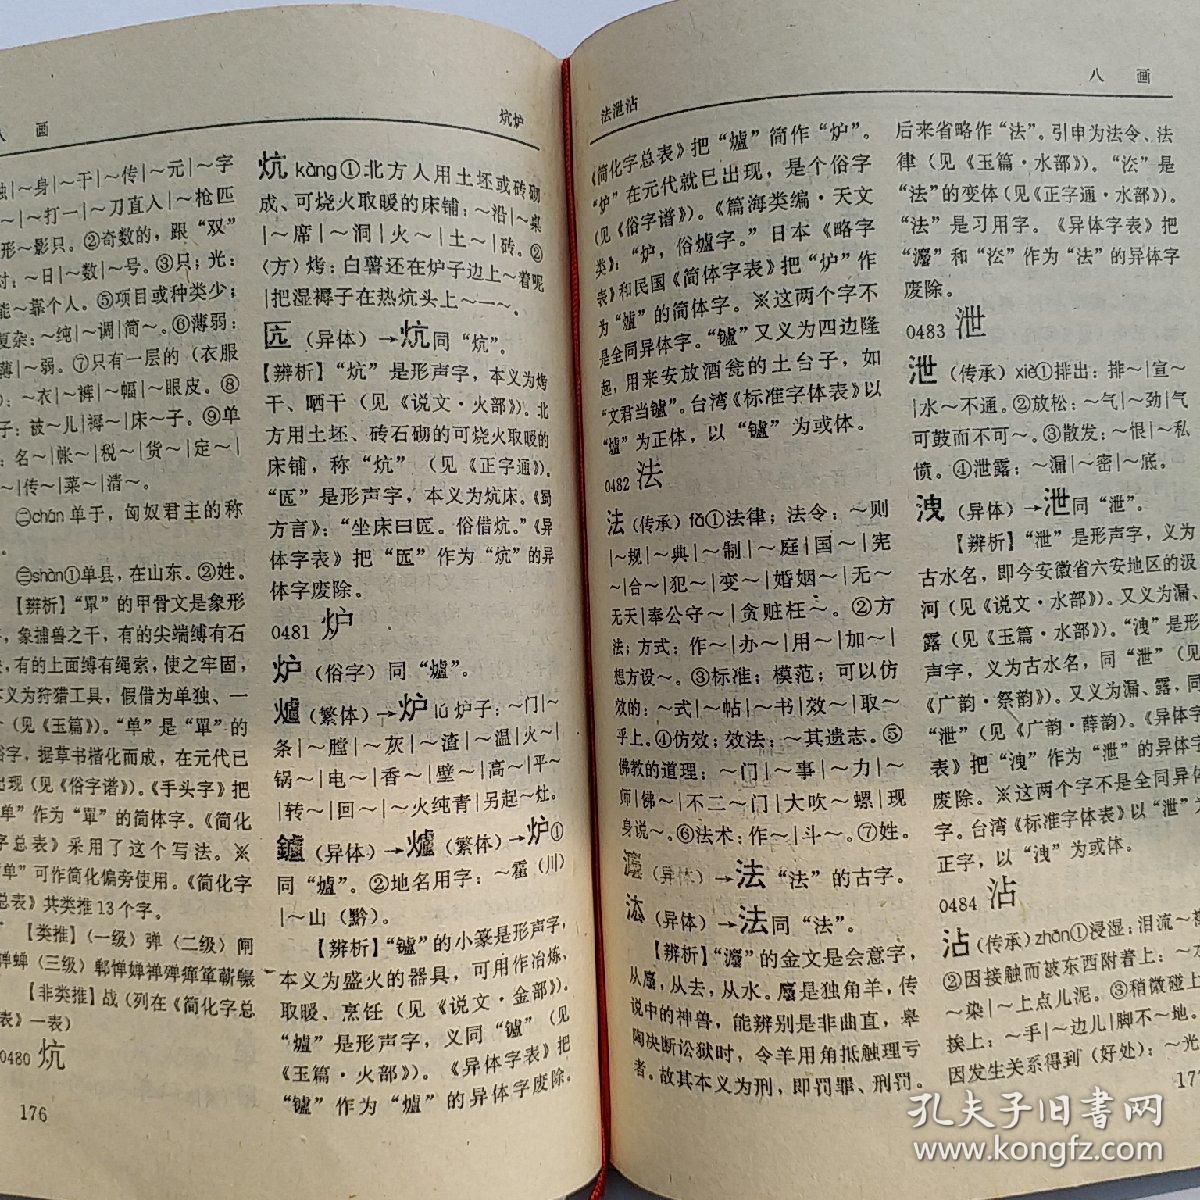 八 画
炕炉
独|～身|～干|～传|～元|～字
～|～打一|～刀直入|～枪匹
形～影只。②奇数的，跟“双”
对：～日|～数|～号。③只；光：
能～靠个人。⑤项目或种类少；
复杂：～纯|～调|简～。⑥薄弱：
薄|～弱。⑦只有一层的（衣服
）：～衣|～裤|～幅|～眼皮。⑧
子：被～儿|褥～|床～子。⑨单
：名～|帐～|税～|货～|定～|
～|传～|菜～|清～。
㊁chán单于，匈奴君主的称
。
㊂shàn①单县，在山东。②姓。
【辨析】“單”的甲骨文是象形
，象捕兽之干，有的尖端缚有石
，有的上面缚有绳索，使之牢固，
本义为狩猎工具，假借为单独、一
（见《玉篇》）。“单”是“單”的
俗字，据草书楷化而成，在元代已
出现（见《俗字谱》）。《手头字》把
“单”作为“單”的简体字。《简化
字总表》采用了这个写法。※
“单”可作简化偏旁使用。《简化字
总表》共类推13个字。
【类推】（一级）弹（二级）阐
婵蝉（三级）郸惮婵禅殚瘅箪蕲冁
【非类推】战（列在《简化字总
表》一表）
0480 炕
176
炕 kàng①北方人用土坯或砖砌
成、可烧火取暖的床铺：～沿|～桌
|～席|～洞|火～|土～|砖。②
（方）烤：白薯还在炉子边上～着呢
|把湿褥子在热炕头上～一～。
匟（异体）→炕同“炕”。
【辨析】“炕”是形声字，本义为烤
干、晒干（见《说文·火部》）。北
方用土坯、砖石砌的可烧火取暖的
床铺，称“炕”（见《正字通》）。
“匟”是形声字，本义为炕床。《蜀
方言》：“坐床曰匟。俗借炕。”《异
体字表》把“匟”作为“炕”的异
体字废除。
0481 炉
炉（俗字）同“爐”。
爐（繁体）→炉lú炉子：～门|～
条|～膛|～灰|～渣|～温|火～|
锅～|电～|香～|壁～|高～|平～
|转～|回～|～火纯青|另起～灶。
鑪（异体）→爐（繁体）→炉①
同“爐”。②地名用字：～霍（川）
|～山（黔）。
【辨析】“鑪”的小篆是形声字，
本义为盛火的器具，可用作冶炼，
取暖、烹饪（见《说文·金部》）。
“爐”是形声字，义同“鑪”（见
《玉篇·火部》）。《异体字表》把
“鑪”作为“爐”的异体字废除。
法泄沾
八 画
《简化字总表》把“爐”简作“炉”。
“炉”在元代就已出现，是个俗字
（见《俗字谱》）。《篇海类编·天文
类》：“炉，俗爐字。”日本《略字
表》和民国《简体字表》把“炉”作
为“爐”的简体字。※这两个字不
是全同异体字。“鑪”又义为四边隆
起，用来安放酒瓮的土台子，如
“文君当鑪”。台湾《标准字体表》以
“爐”为正体，以“鑪”为或体。
0482 法
法（传承）fǎ①法律；法令：～则
|～规|～典|～制|～庭|国～|宪
～|合～|犯～|变～|婚姻～|无～
无天|奉公守～|贪赃枉～。②方
法；方式：作～|办～|用～|加～|
想方设～。③标准；模范；可以仿
效的：～式|～帖|～书|效～|取～
乎上。④仿效；效法：～其遗志。⑤
佛教的道理：～门|～事|～力|～
师|佛～|不二～门|大吹～螺|现
身说～。⑥法术：作～|斗～。⑦姓。
灋（异体）→法“法”的古字。
泫（异体）→法同“法”。
【辨析】“灋”的金文是会意字，
从廌，从去，从水。廌是独角羊，传
说中的神兽，能辨别是非曲直，皋
陶决断讼狱时，令羊用角抵触理亏
者。故其本义为刑，即罚罪、刑罚。
后来省略作“法”。引申为法令、法
律（见《玉篇·水部》）。“㳒”是
“法”的变体（见《正字通·水部》）。
“法”是习用字。《异体字表》把
“灋”和“㳒”作为“法”的异体字
废除。
0483 泄
泄（传承）xiè①排出：排～|宣～
|水～不通。②放松：～气|～劲|气
可鼓而不可～。③散发：～恨|～私
愤。④泄露：～漏|～密|～底。
洩（异体）→泄同“泄”。
【辨析】“泄”是形声字，义为
古水名，即今安徽省六安地区的汲
河（见《说文·水部》）。又义为漏、
露（见《玉篇·水部》）。“洩”是形
声字，义为古水名，同“泄”（见
《广韵·祭韵》）。又义为漏、露，同
“泄”（见《广韵·薛韵》）。《异体字
表》把“洩”作为“泄”的异体字
废除。※这两个字不是全同异体
字。台湾《标准字体表》以“泄”为
正字，以“洩”为或体。
0484 沾
沾（传承）zhān①浸湿：泪流～
②因接触而被东西附着上：～
～染|～上点儿泥。③稍微碰上
挨上：～手|～边儿|脚不～地。
因发生关系得到（好处）：～光
177
孔夫子旧书网
www.kongfz.com